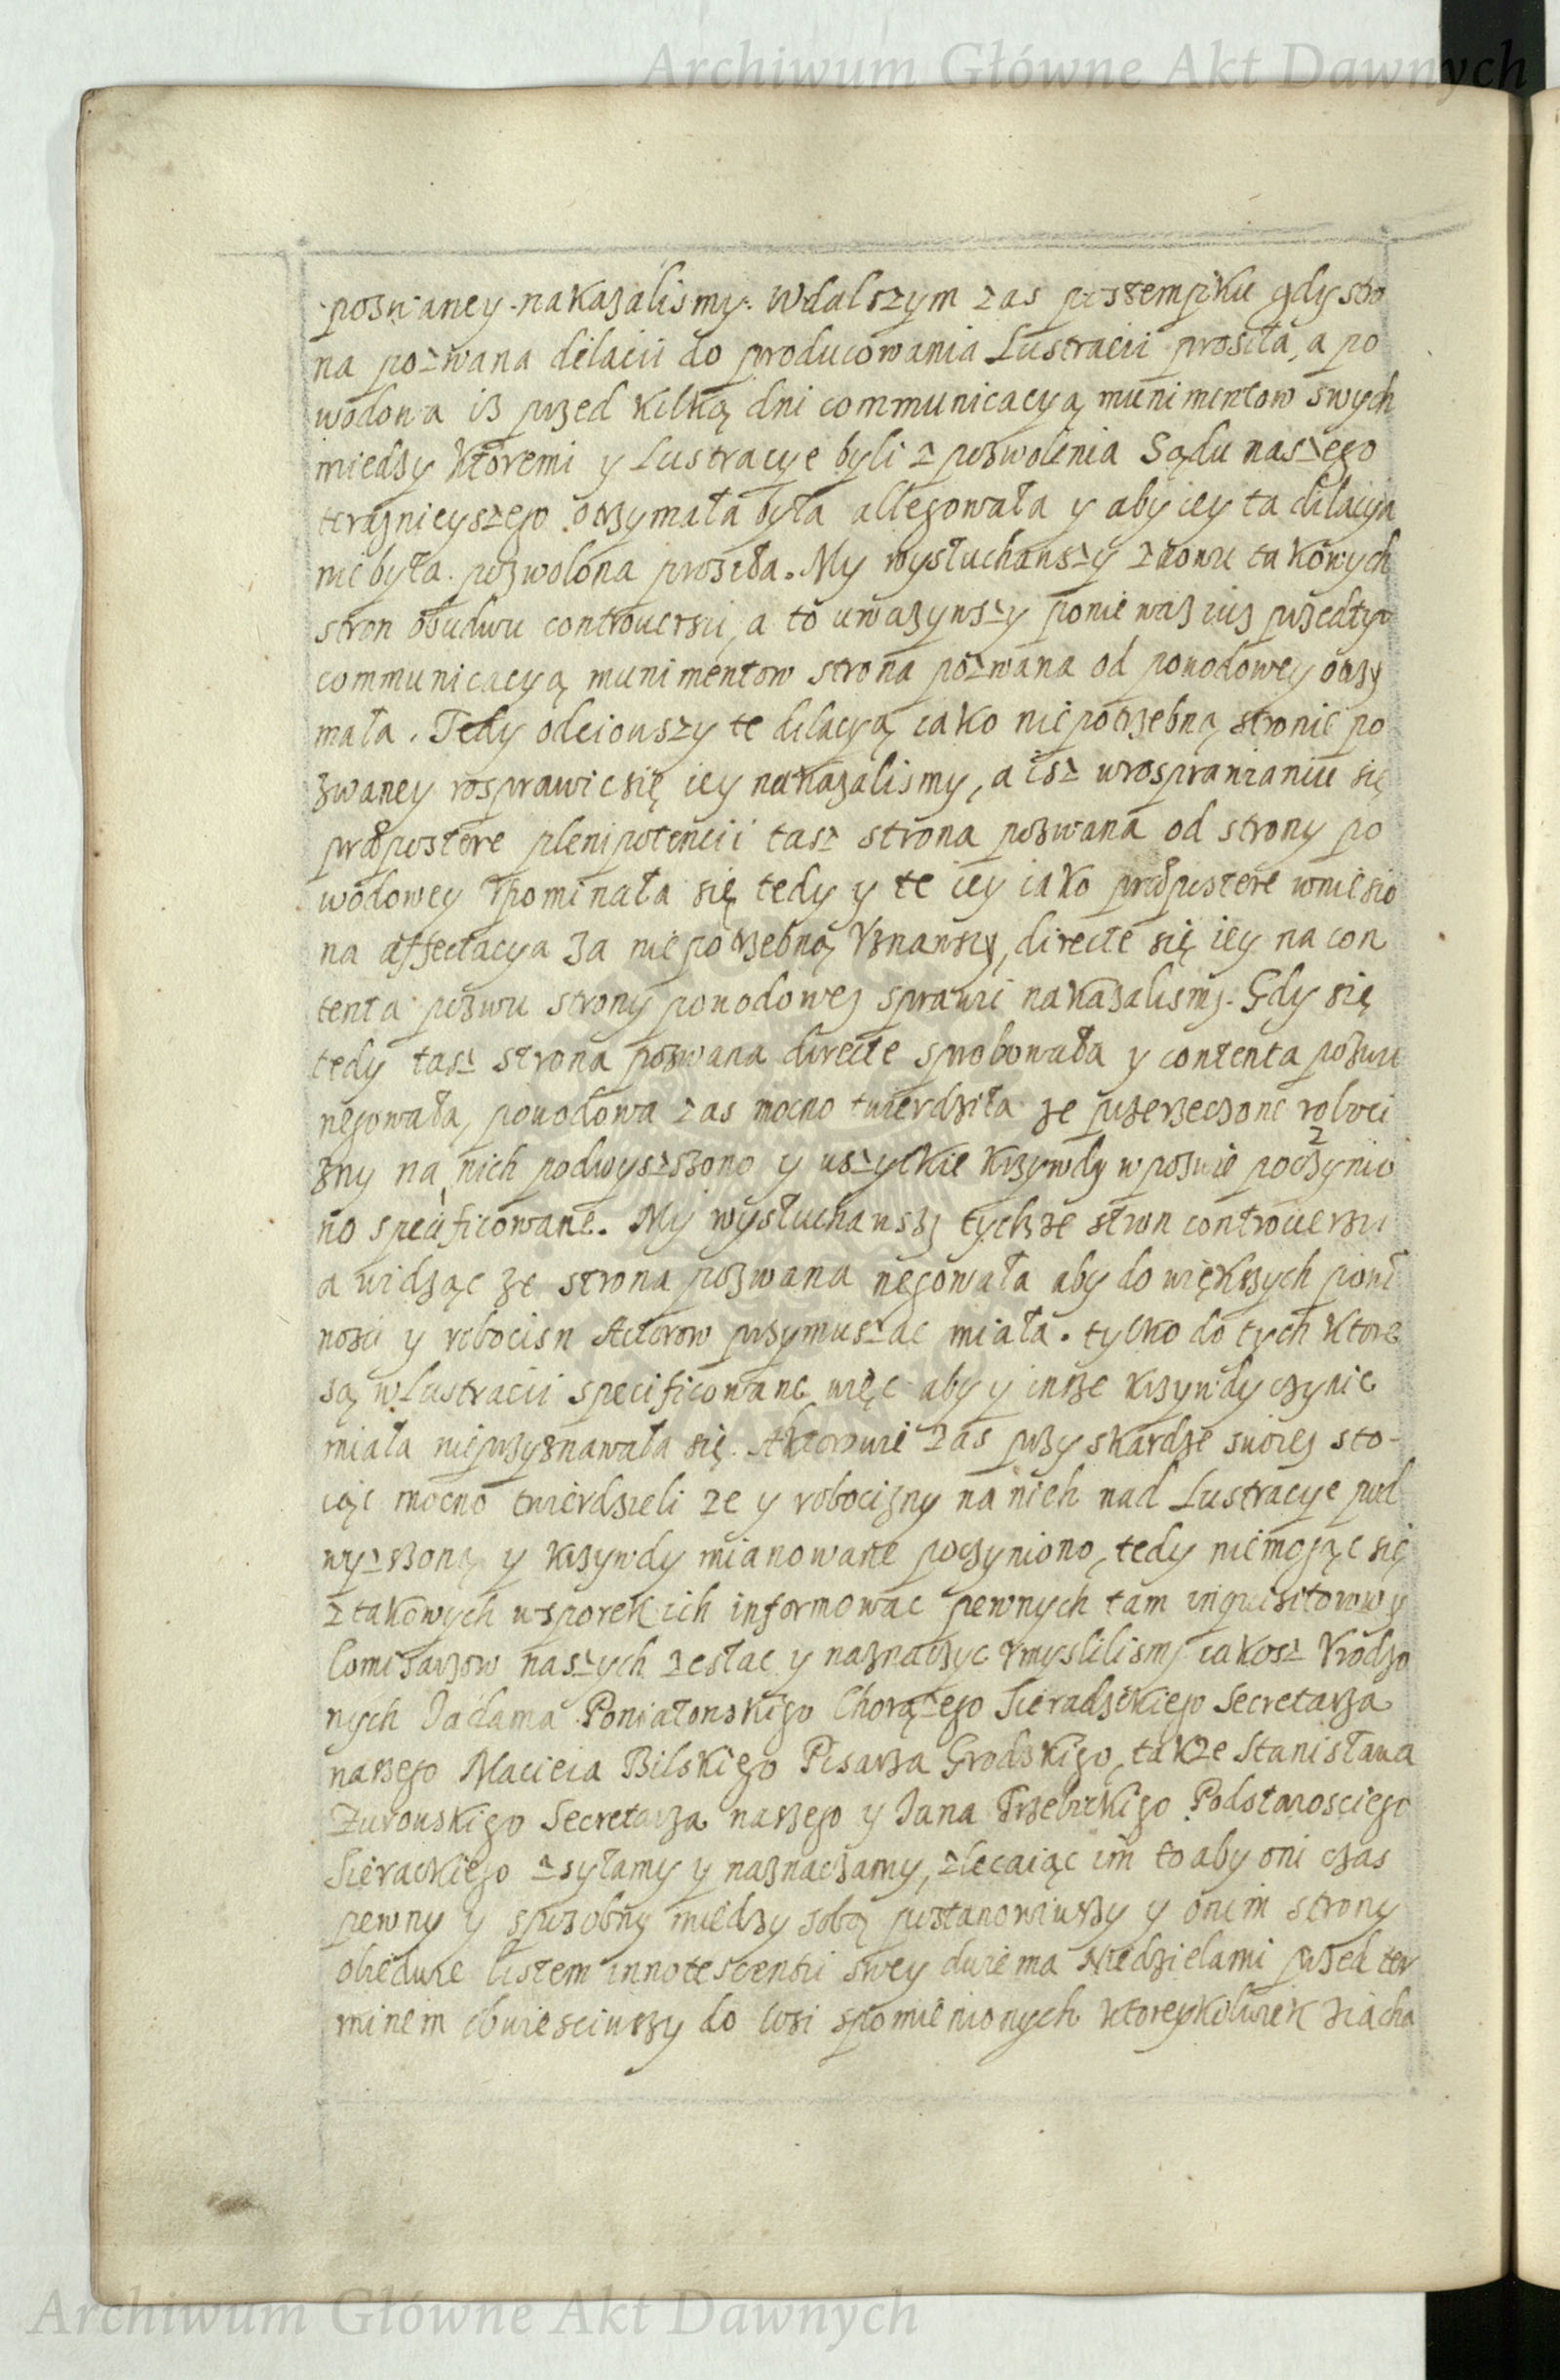 Archiwum Główne Akt Dawnych
pozwaney nakazalismy. Wdalszym zas postempku gdy stro
na pozwana dilacii do producowania Lustracii prosiła, a po
wodowa iz przed kilką dni communicacyą munimentow swych
miedzy ktoremi y Lustracye byli z pozwolenia Sądu naszego
teraznieyszego otrzymała była allegowała y aby iey ta dilacya
nie była pozwolona prosiła. My wysłuchawszy znowu takowych
stron obudwu controuersii, a to uwazywszy poniewaz iuz przedtym
communicacyą munimentow strona pozwana od powodowey otrzy
mała. Tedy odciowszy te dilacyą iako niepotrzebną stronie po
zwaney rosprawic się iey nakazalismy, a isz w rosprawianiu się
præpostere plenipotencii tasz strona pozwana od strony po
wodowey Vpominała się tedy y te iey iako præpostere wniesio
na affectacya za niepotrzebną Vznawszy, directe się iey na con
tenta pozwu strony powodowey sprawić nakazalismy. Gdy się
tedy tasz strona pozwana directe sprobowała y contenta pozwu
negowała, powodowa zas mocno twierdziła ze przerzeczone roboci
zny na nich podwyszszono y wszytkie krzywdy w pozwie poczynio
no specificowane. My wysłuchawszy tychze stron controuersii
a widząc ze strona pozwana negowała aby do większych powi
nosci y robocizn Actorow przymuszac miała. tylko do tych ktore
są w Lustracii specificowane więc aby y insze krzywdy czynic
miała nieprzyznawała się. Aktorowie zas przy skardze swoiey sto-
iąc mocno twierdzieli ze y robocizny na nich nad Lustracye pod
wyzszoną y krzywdy mianowane poczyniono, tedy niemogąc się
z takowych wsporek ich informowac pewnych tam inquisitorow y
Comisarzow naszych zesłac y naznaczyc Vmyslilismy iakosz Vrodzo
nych Jadama Poniatowskigo Chorązego Sieradzkiego Secretarza
naszego Macieia Bilskiego Pisarza Grodzkigo, takze Stanisława
Zurowskigo Secretarza naszego y Jana Trzebickigo Podstarosciego
Sierackiego zsyłamy y naznaczamy, zlecaiąc im to aby oni czas
pewny y sposobny miedzy sobą postanowiwszy y onem strony
obiedwie listem innotescentii swey dwiema Niedzielami przed ter
minem obwiesciwszy do Wsi spomienionych ktoreykolwiek ziacha
Archiwum Główne Akt Dawnych